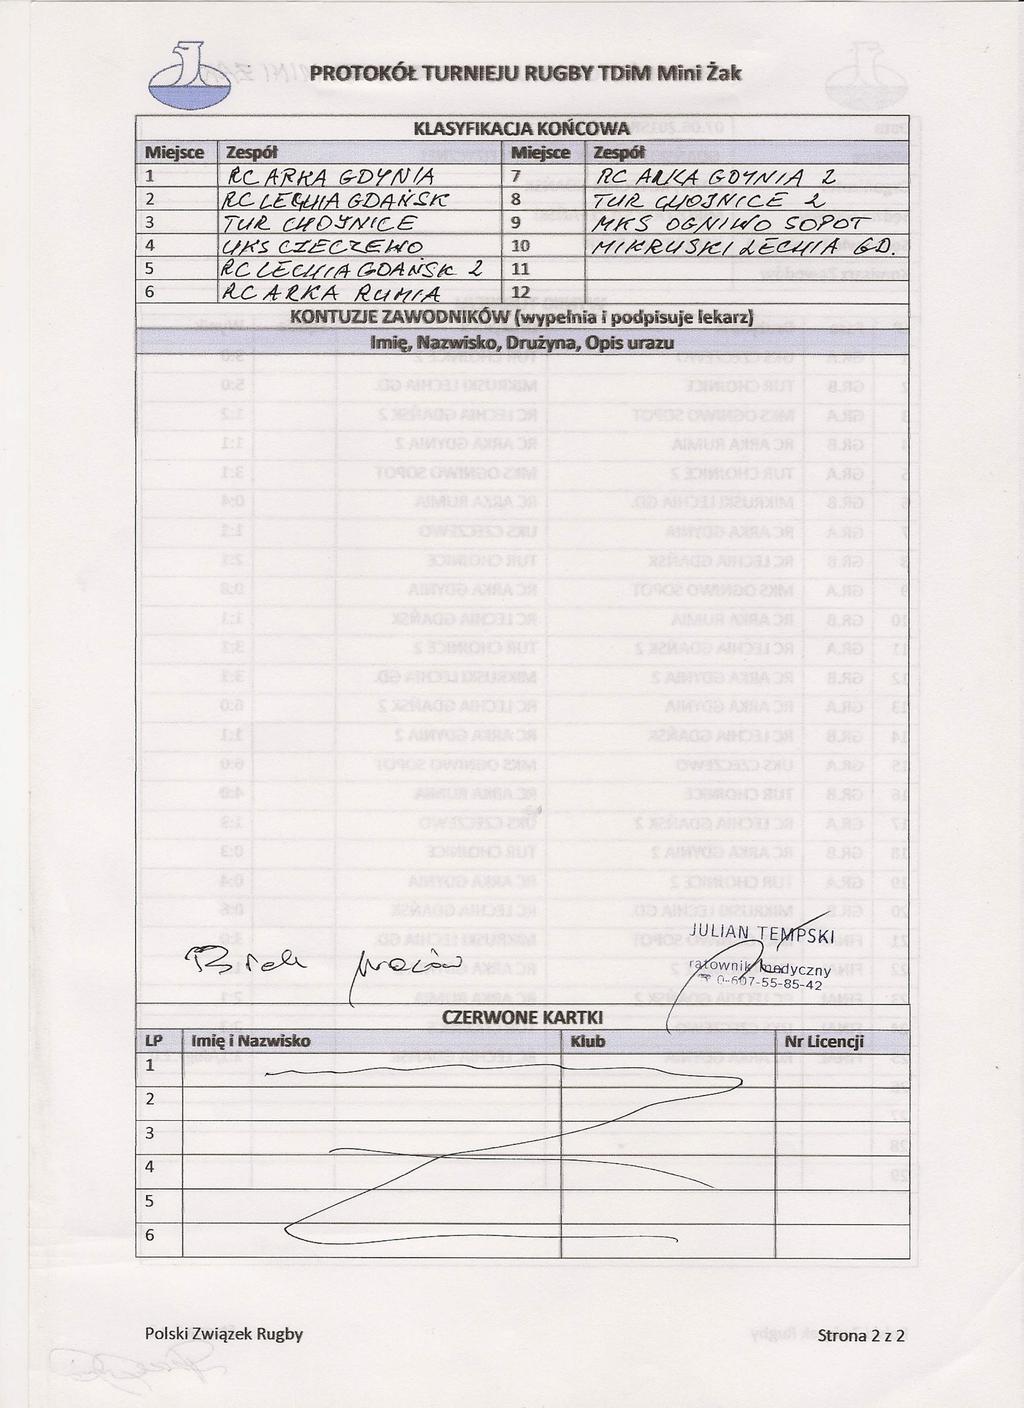 PROTOKÓŁ TURNIEJU RUGBY TDiM Mini Żak
KLASYFIKACJA KOŃCOWA
Miejsce Zespół Miejsce Zespół
1 RC ARKA GDYNIA 7 RC ARKA GDYNIA 2
2 RC LECHIA GDAŃSK 8 TUR CHOJNICE 2
3 TUR CHOJNICE 9 MKS OGNIWO SOPOT
4 UKS CZECZEWO 10 MIKRUSKI LECHIA GD.
5 RC LECHIA GDAŃSK 2 11
6 RC ARKA RUMIA 12
KONTUZJE ZAWODNIKÓW (wypełnia i podpisuje lekarz)
Imię, Nazwisko, Drużyna, Opis urazu
Brak urazów
JULIAN TEMPSKI
ratownik medyczny
☎ 0-607-55-85-42
CZERWONE KARTKI
LP Imię i Nazwisko Klub Nr Licencji
1
2
3
4
5
6
Polski Związek Rugby Strona 2 z 2